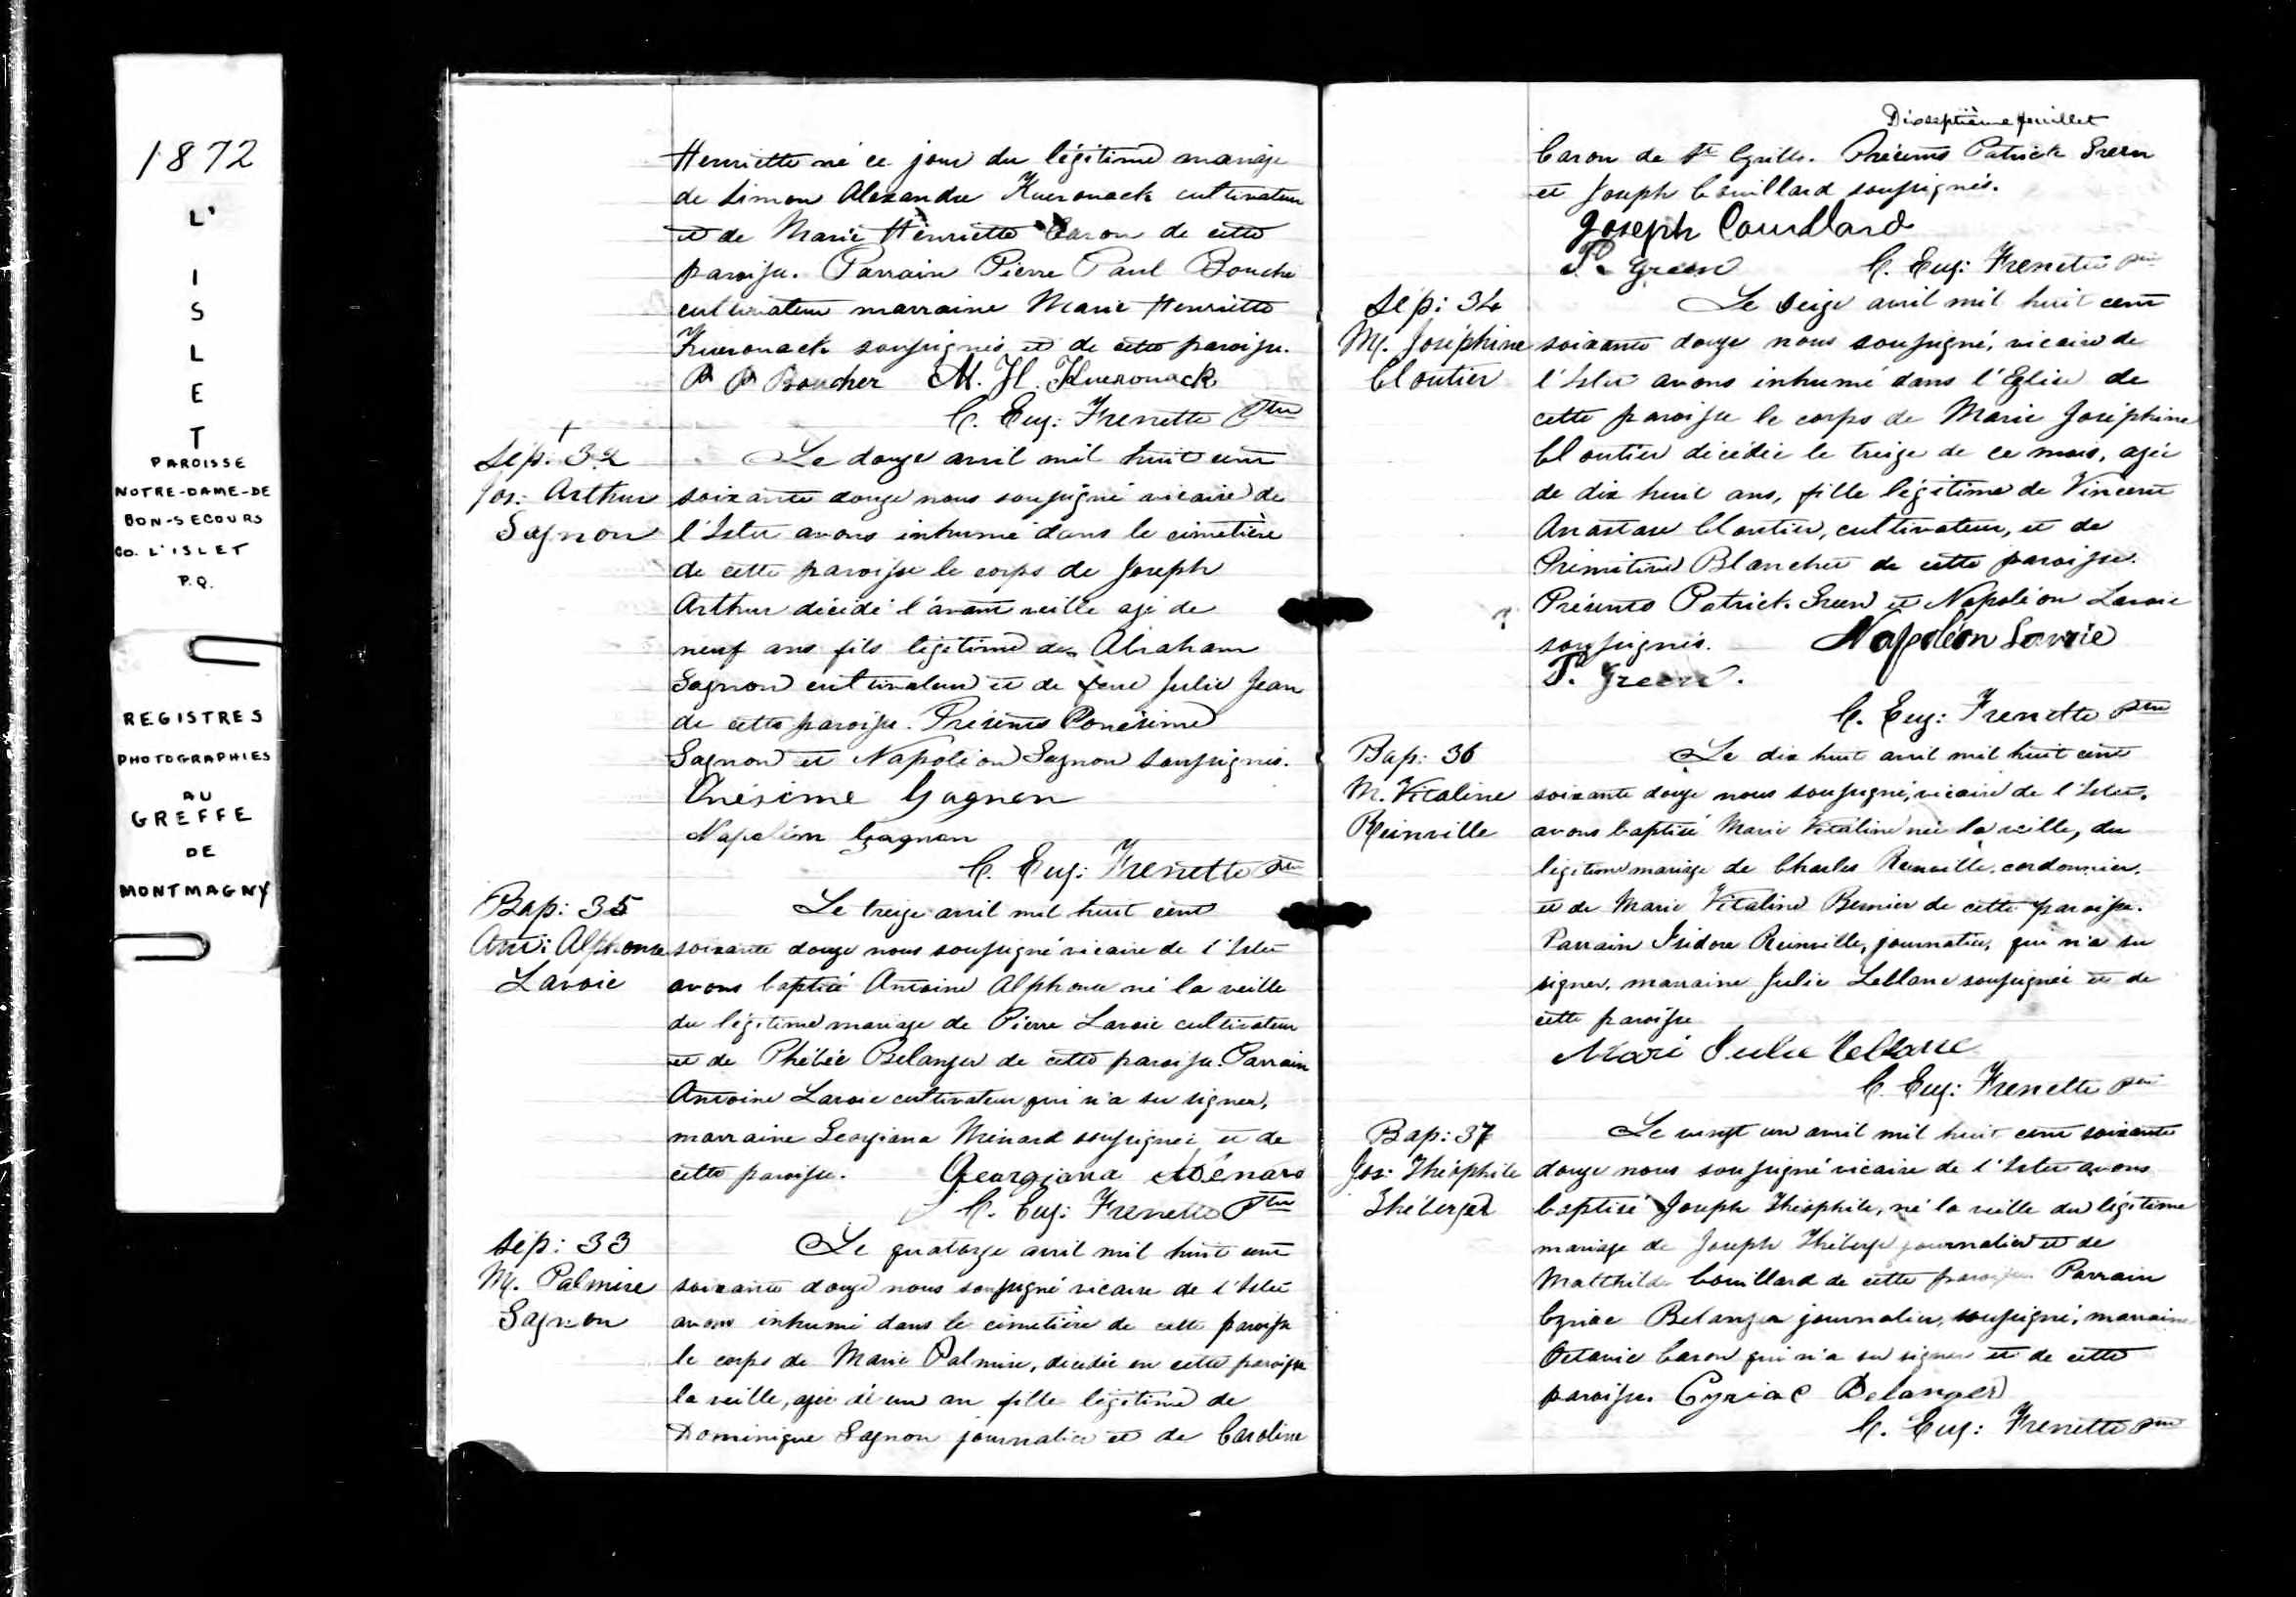 1872
L'
I
S
L
E
T
PAROISSE
NOTRE-DAME-DE
BON-SECOURS
CO. L'ISLET
P.Q.
REGISTRES
PHOTOGRAPHIES
AU
GREFFE
DE
MONTMAGNY
Henriette né ce jour du légitime mariage
de Simon Alexandre Kuerouack cultivateur
et de Marie Henriette Caron de cette
paroisse. Parrain Pierre Paul Bouché
cultivateur marraine Marie Henriette
Kuerouack soussignés et de cette paroisse.
P P Boucher M. H. Kuerouack
C. Eug: Frenette Ptre
+
Sép: 32
Jos: Arthur
Gagnon
Le douze avril mil huit cent
soixante douze nous soussigné vicaire de
l'Islet avons inhumé dans le cimetière
de cette paroisse le corps de Joseph
Arthur décédé l'avant veille agé de
neuf ans fils légitime de Abraham
Gagnon cultivateur et de feue Julie Jean
de cette paroisse. Présents Onésime
Gagnon et Napoléon Gagnon soussignés.
Onésime Gagnon
Napoléon Gagnon
C. Eug: Frenette Ptre
Bap: 35
Ant: Alphonse
Lavoie
Le treize avril mil huit cent
soixante douze nous soussigné vicaire de l'Islet
avons baptisé Antoine Alphonse né la veille
du légitime mariage de Pierre Lavoie cultivateur
et de Phébée Belanger de cette paroisse. Parrain
Antoine Lavoie cultivateur qui n'a su signer,
marraine Georgiana Ménard soussignée et de
cette paroisse. Georgiana Ménard
C. Eug: Frenette Ptre
Sép: 33
M. Palmire
Gagnon
Le quatorze avril mil huit cent
soixante douze nous soussigné vicaire de l'Islet
avons inhumé dans le cimetière de cette paroisse
le corps de Marie Palmire, décédée en cette paroisse
la veille, agée de un an fille légitime de
Dominique Gagnon journalier et de Caroline
Dixseptième feuillet
Caron de St Cyrille. Présents Patrick Green
et Joseph Couillard soussignés.
Joseph Couillard
P. Green C. Eug: Frenette Ptre
Sép: 34
M. Joséphine
Cloutier
Le seize avril mil huit cent
soixante douze nous soussigné, vicaire de
l'Islet avons inhumé dans l'Eglise de
cette paroisse le corps de Marie Joséphine
Cloutier décédée le treize de ce mois, agée
de dix huit ans, fille légitime de Vincent
Anastase Cloutier, cultivateur, et de
Primitive Blanchet de cette paroisse.
Présents Patrick Green et Napoléon Lavoie
soussignés. Napoléon Lavoie
P. Green.
C. Eug: Frenette Ptre
Bap: 36
M. Vitaline
Reinville
Le dix huit avril mil huit cent
soixante douze nous soussigné, vicaire de l'Islet,
avons baptisé Marie Vitaline née la veille, du
légitime mariage de Charles Reinville, cordonnier,
et de Marie Vitaline Bernier de cette paroisse.
Parrain Isidore Reinville, journalier, qui n'a su
signer, marraine Julie Leblanc soussignée et de
cette paroisse
Marie Julie Leblanc
C. Eug: Frenette Ptre
Bap: 37
Jos: Théophile
Théberge
Le vingt un avril mil huit cent soixante
douze nous soussigné vicaire de l'Islet avons
baptisé Joseph Théophile, né la veille du légitime
mariage de Joseph Théberge journalier et de
Matthilde Couillard de cette paroisse Parrain
Cyriac Belanger journalier, soussigné, marraine
Octavie Caron qui n'a su signer et de cette
paroisse. Cyriac Belanger
C. Eug: Frenette Ptre